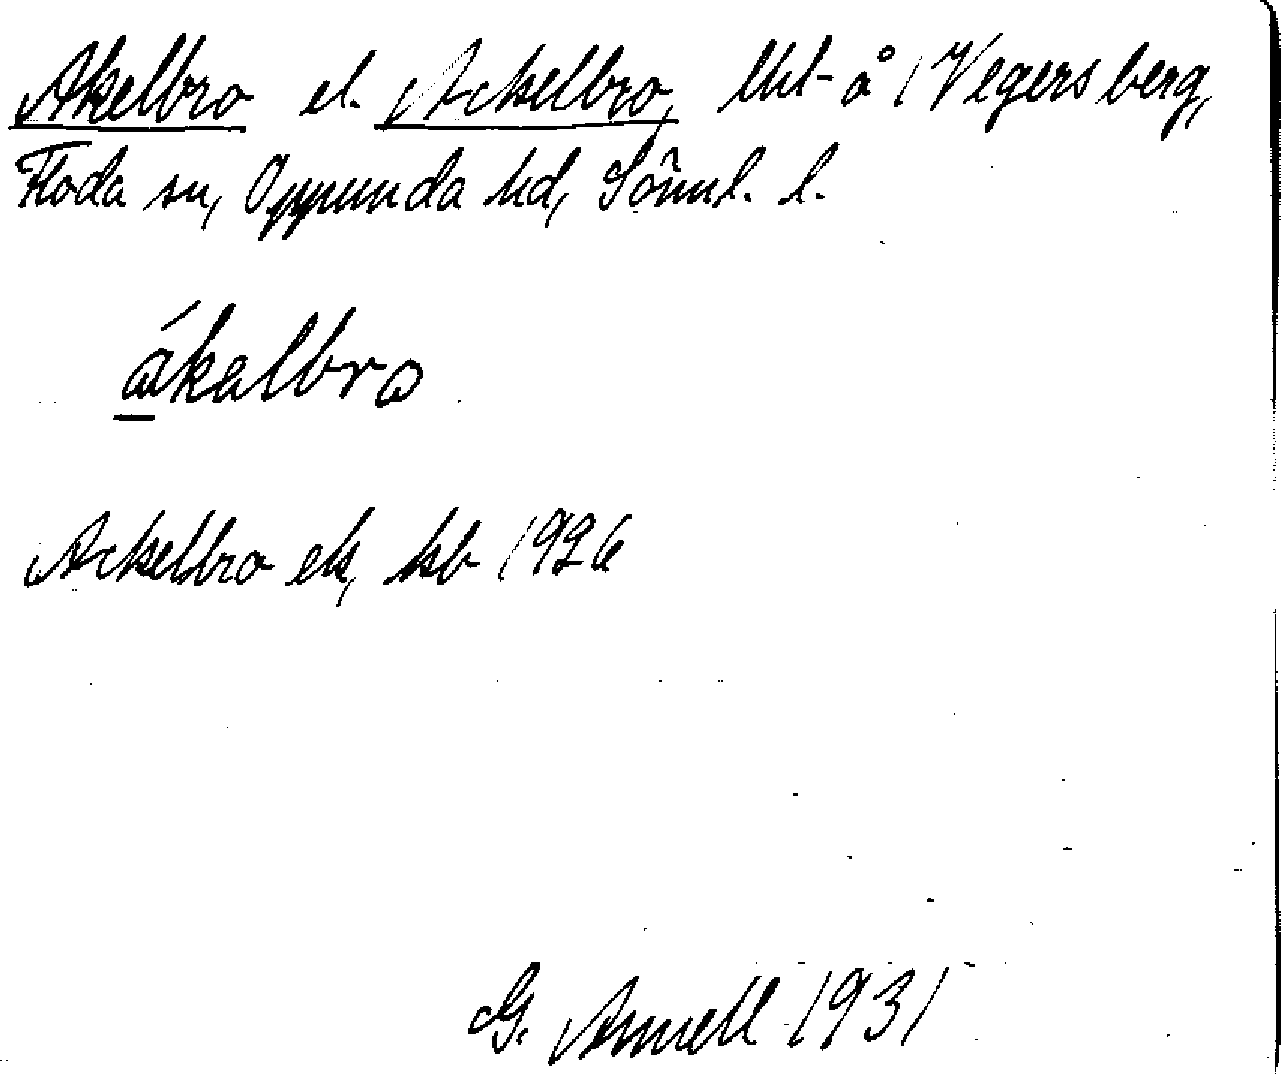 Akelbro el. Ackelbro, lht å 1 Vegersberg,
Floda sn, Oppunda hd, Sörml. l.
ákalbro
Ackelbro ek, kb 1926
G. Annell 1931